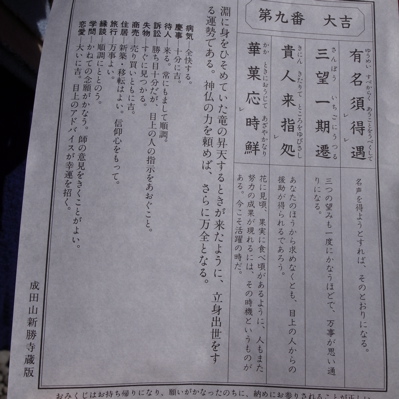 第九番 大吉
有名須得遇
三望一期遷
貴人来指処
華菓応時鮮
名声を得ようとすれば、そのとおりになる。
三つの望みも一度にかなうほどで、万事が思い通りになる。
あなたのほうから求めなくとも、目上の人からの援助が得られるであろう。
花に見頃、果実に食べ頃があるように、人もまた努力の成果が現れるには、その時機というものがある。今こそ活躍の時だ。
淵に身をひそめていた竜の昇天するときが来たように、立身出世をする運勢である。神仏の力を頼めば、さらに万全となる。
病気 全快する。
慶事 十分に吉。
待人 来る。常にもまして順調。
訴訟 勝ち目十分だが、目上の人の指示をあおぐこと。
失物 すぐに見つかる。
商売 売り買いともに吉。
住居 新築・移転はよい。信仰心をもって。
旅行 万事よい。
縁談 順調にととのう。
学問 かねての念願がかなう。師の意見をきくことがよい。
恋愛 大いに吉。目上のアドバイスが幸運を招く。
成田山新勝寺蔵版
おみくじはお持ち帰りになり、願いがかなったのちに、納めにお参りされることが